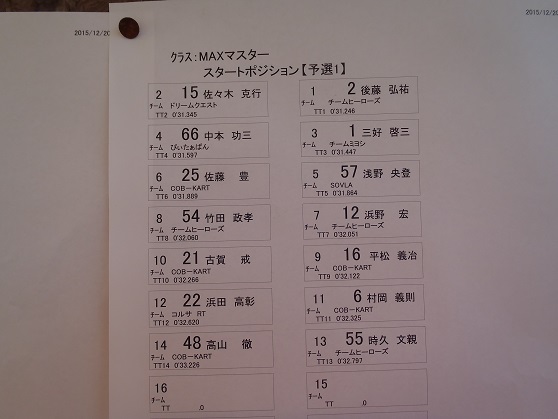 2015/12/20
2015/12/20
クラス:MAXマスター
スタートポジション【予選1】
2 15 佐々木 克行
チーム ドリームクエスト
TT2 0'31.345
1 2 後藤 弘祐
チーム チームヒーローズ
TT1 0'31.246
4 66 中本 功三
チーム ぴぃたぁぱん
TT4 0'31.597
3 1 三好 啓三
チーム チームミヨシ
TT3 0'31.447
6 25 佐藤 豊
チーム COB-KART
TT6 0'31.889
5 57 浅野 央登
チーム SOVLA
TT5 0'31.664
8 54 竹田 政孝
チーム チームヒーローズ
TT8 0'32.060
7 12 浜野 宏
チーム チームヒーローズ
TT7 0'32.051
10 21 古賀 戒
チーム COB-KART
TT10 0'32.266
9 16 平松 義冶
チーム COB-KART
TT9 0'32.122
12 22 浜田 高彰
チーム コルサ RT
TT12 0'32.620
11 6 村岡 義則
チーム COB-KART
TT11 0'32.325
14 48 高山 徹
チーム COB-KART
TT14 0'33.226
13 55 時久 文親
チーム チームヒーローズ
TT13 0'32.797
16
チーム
TT .0
15
チーム
TT .0